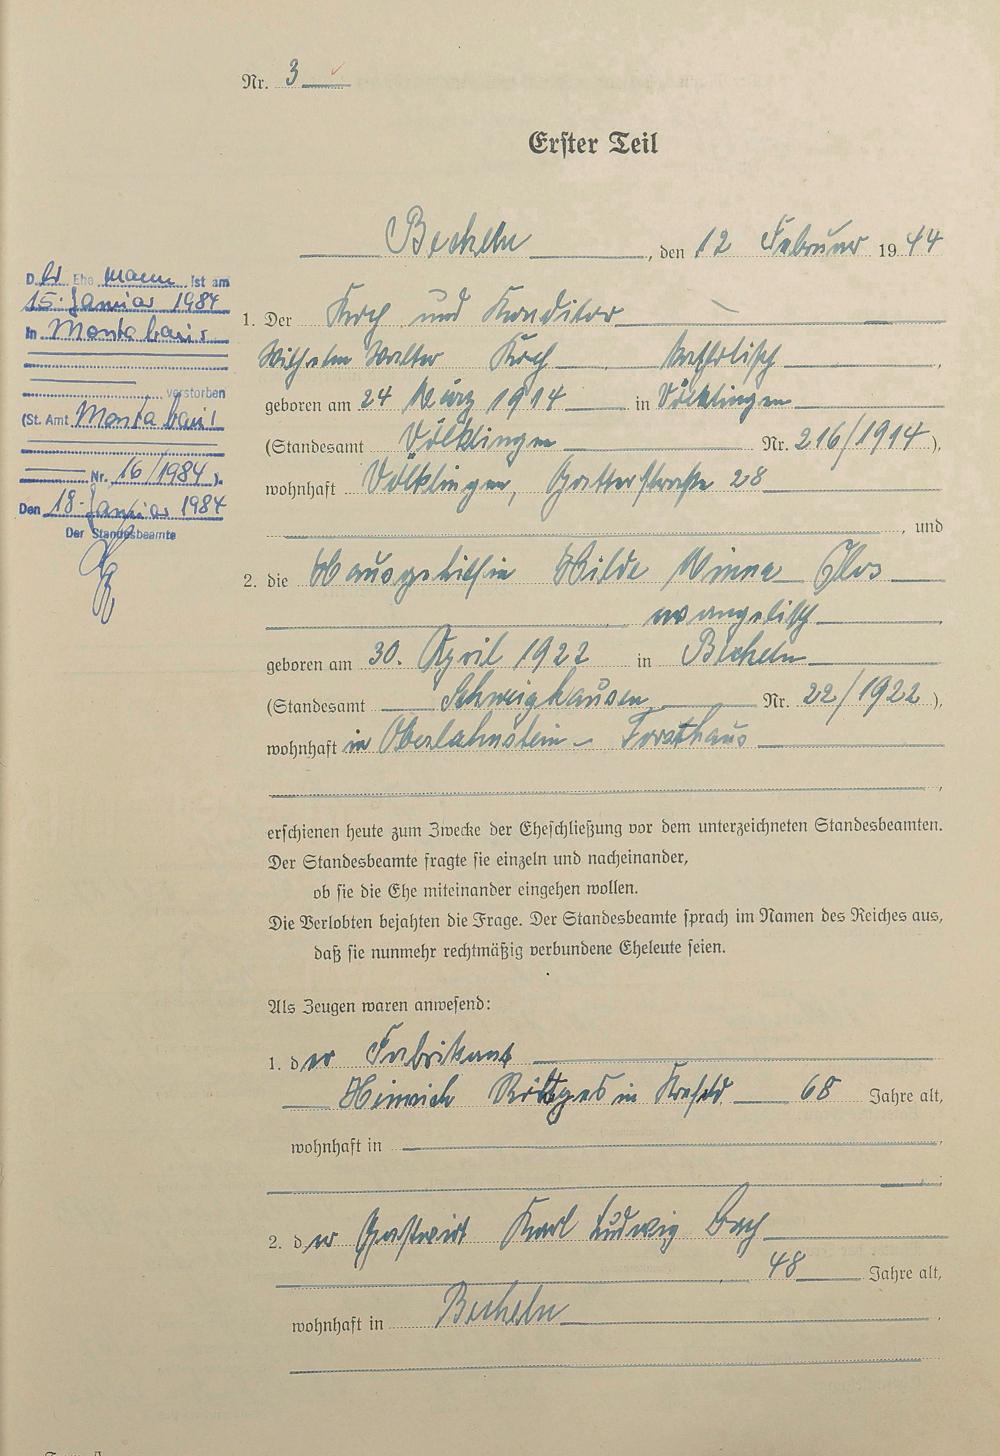 Nr. 3
Erster Teil
Becheln, den 12 Februar 1944
Der Ehemann ist am
15. Januar 1984
in Montabaur
verstorben
(St. Amt Montabaur
Nr. 16/1984).
Den 18. Januar 1984
Der Standesbeamte
1. Der Koch und Konditor
Wilhelm Walter Koch katholisch,
geboren am 24 März 1914 in Völklingen
(Standesamt Völklingen Nr. 216/1914),
wohnhaft Völklingen, Gatterstraße 28
, und
2. die Hausgehilfin Hilde Minna Clos
evangelisch,
geboren am 30. April 1922 in Becheln
(Standesamt Schweighausen Nr. 22/1922),
wohnhaft in Oberlahnstein - Forsthaus
,
erschienen heute zum Zwecke der Eheschließung vor dem unterzeichneten Standesbeamten.
Der Standesbeamte fragte sie einzeln und nacheinander,
ob sie die Ehe miteinander eingehen wollen.
Die Verlobten bejahten die Frage. Der Standesbeamte sprach im Namen des Reiches aus,
daß sie nunmehr rechtmäßig verbundene Eheleute seien.
Als Zeugen waren anwesend:
1. der Fabrikant
Heinrich Röttges in Krefeld 68 Jahre alt,
wohnhaft in
2. der Gastwirt Karl Ludwig
48 Jahre alt,
wohnhaft in Becheln